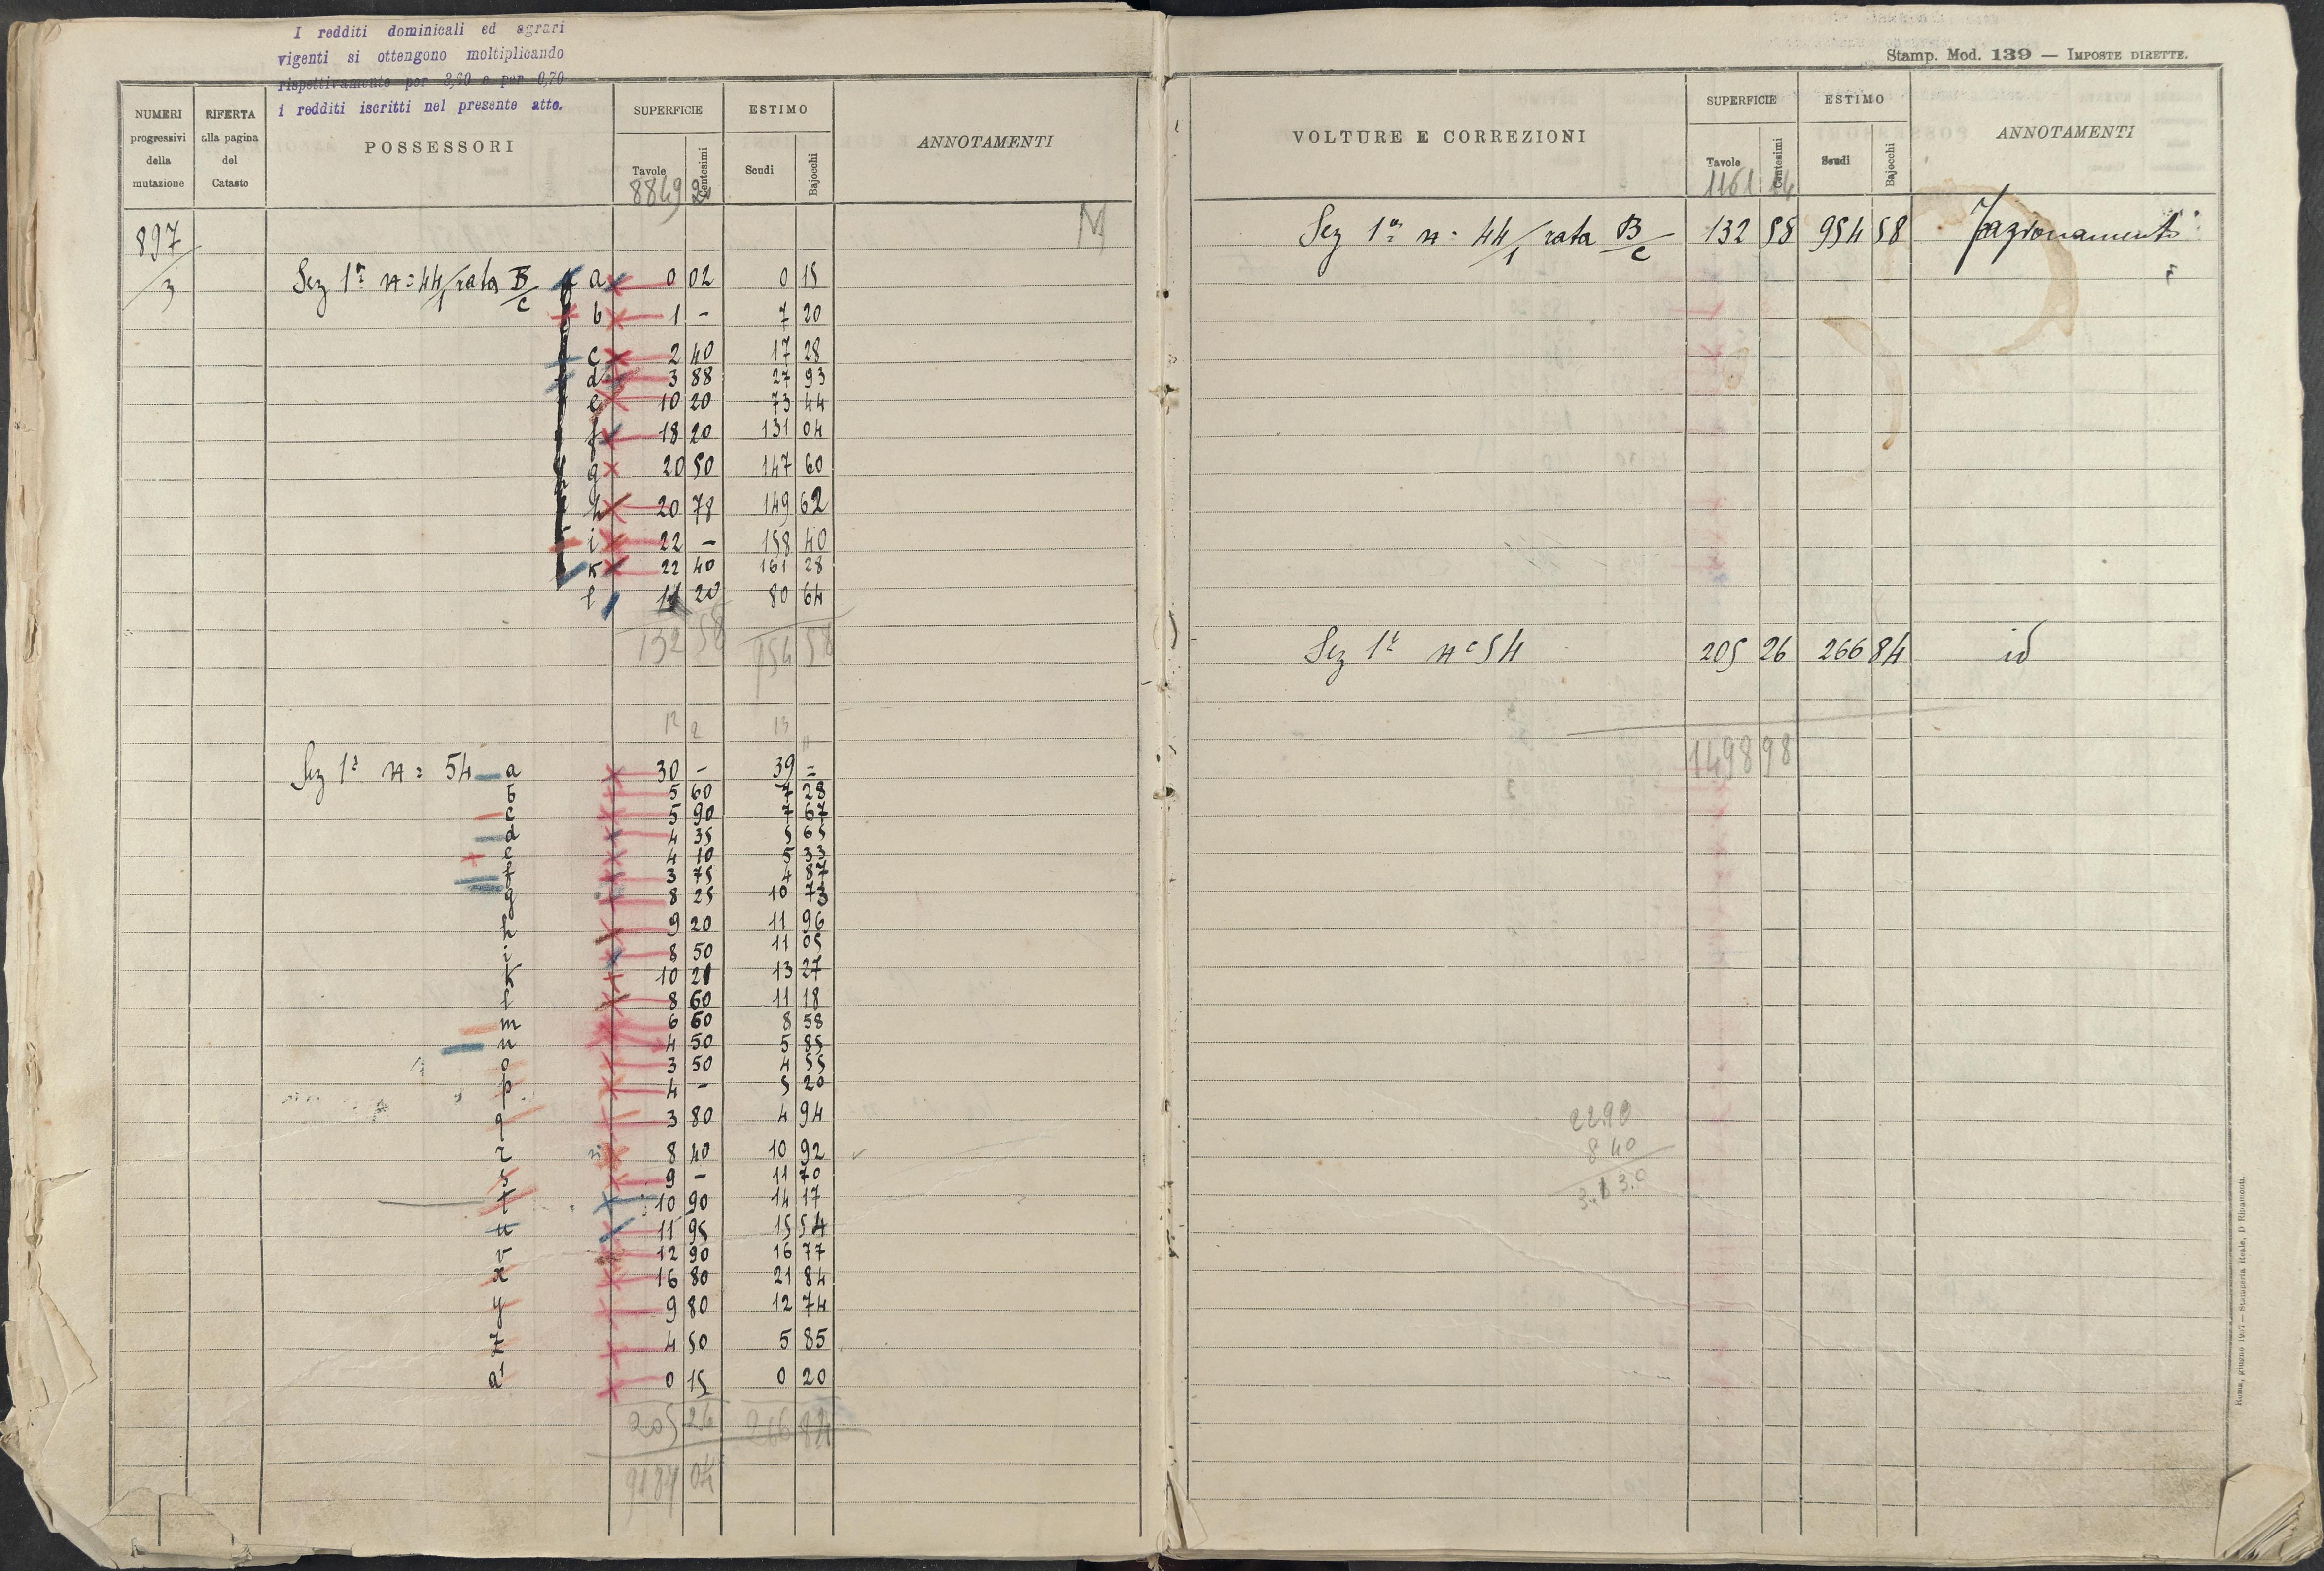 I redditi dominicali ed agrari
vigenti si ottengono moltiplicando
rispettivamente per 3,60 e per 0,70
i redditi iscritti nel presente atto.
NUMERI progressivi della mutazione
RIFERTA alla pagina del Catasto
POSSESSORI
SUPERFICIE Tavole Centesimi
ESTIMO Scudi Bajocchi
ANNOTAMENTI
8849 22
897/3
Sez 1ª n= 44/1 rata B/c a 0 02 0 15
b 1 - 7 20
c 2 40 17 28
d 3 88 27 93
e 10 20 73 44
f 18 20 131 04
g 20 50 147 60
h 20 78 149 62
i 22 - 158 40
k 22 40 161 28
l 11 20 80 64
132 58 954 58
12 2 13
Sez 1ª n= 54 a 30 - 39 =
b 5 60 7 28
c 5 90 7 67
d 4 35 5 65
e 4 10 5 33
f 3 75 4 87
g 8 25 10 73
h 9 20 11 96
i 8 50 11 05
k 10 21 13 27
l 8 60 11 18
m 6 60 8 58
n 4 50 5 85
o 3 50 4 55
p 4 - 5 20
q 3 80 4 94
r 8 40 10 92
s 9 - 11 70
t 10 90 14 17
u 11 95 15 54
v 12 90 16 77
x 16 80 21 84
y 9 80 12 74
z 4 50 5 85
a1 0 15 0 20
205 26 266 84
9187 04
Stamp. Mod. 139 — IMPOSTE DIRETTE.
VOLTURE E CORREZIONI
SUPERFICIE Tavole Centesimi
ESTIMO Scudi Bajocchi
ANNOTAMENTI
1161 14
Sez 1ª n= 44/1 rata B/c 132 58 954 58 Frazionamento
Sez 1ª n= 54 205 26 266 84 id
1498 98
2290
8 40
3.1 3.0
Roma, giugno 1907 — Stamperia Reale, D. Ripamonti.